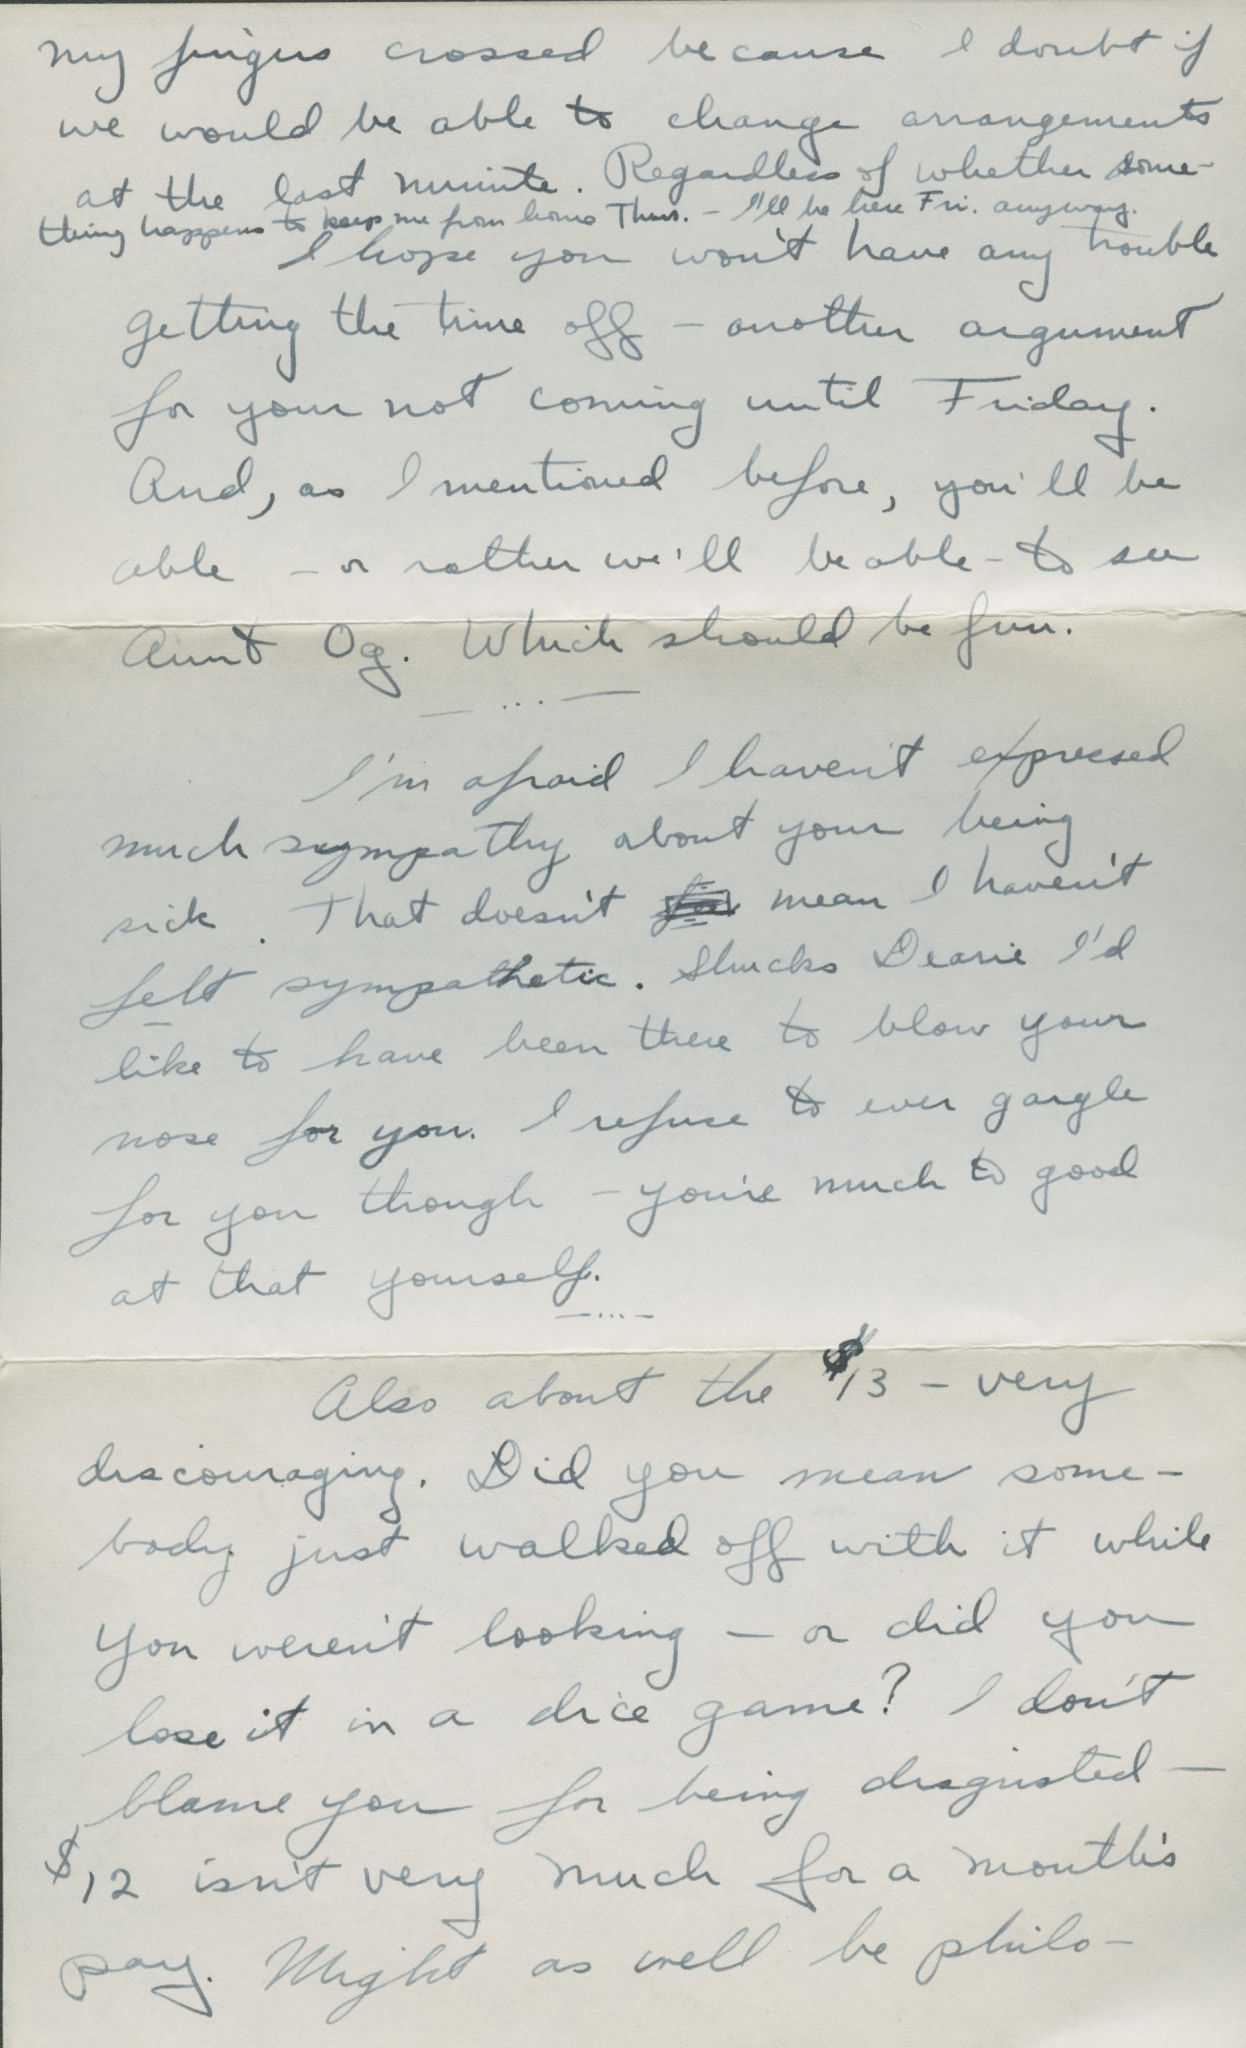 my fingers crossed because I doubt if
we would be able to change arrangements
at the last minute. Regardless of whether some-
thing happens to keep me from home Thurs. – I'll be here Fri. anyway.
I hope you won't have any trouble
getting the time off – another argument
for your not coming until Friday.
And, as I mentioned before, you'll be
able – or rather we'll be able – to see
Aunt Og. Which should be fun.
— ... —
I'm afraid I haven't expressed
much sympathy about your being
sick. That doesn't mean I haven't
felt sympathetic. Shucks Dearie I'd
like to have been there to blow your
nose for you. I refuse to ever gargle
for you though – you're much to good
at that yourself.
— ... —
Also about the $13 – very
discouraging. Did you mean some-
body just walked off with it while
you weren't looking – or did you
lose it in a dice game? I don't
blame you for being disgusted –
$12 isn't very much for a month's
pay. Might as well be philo-